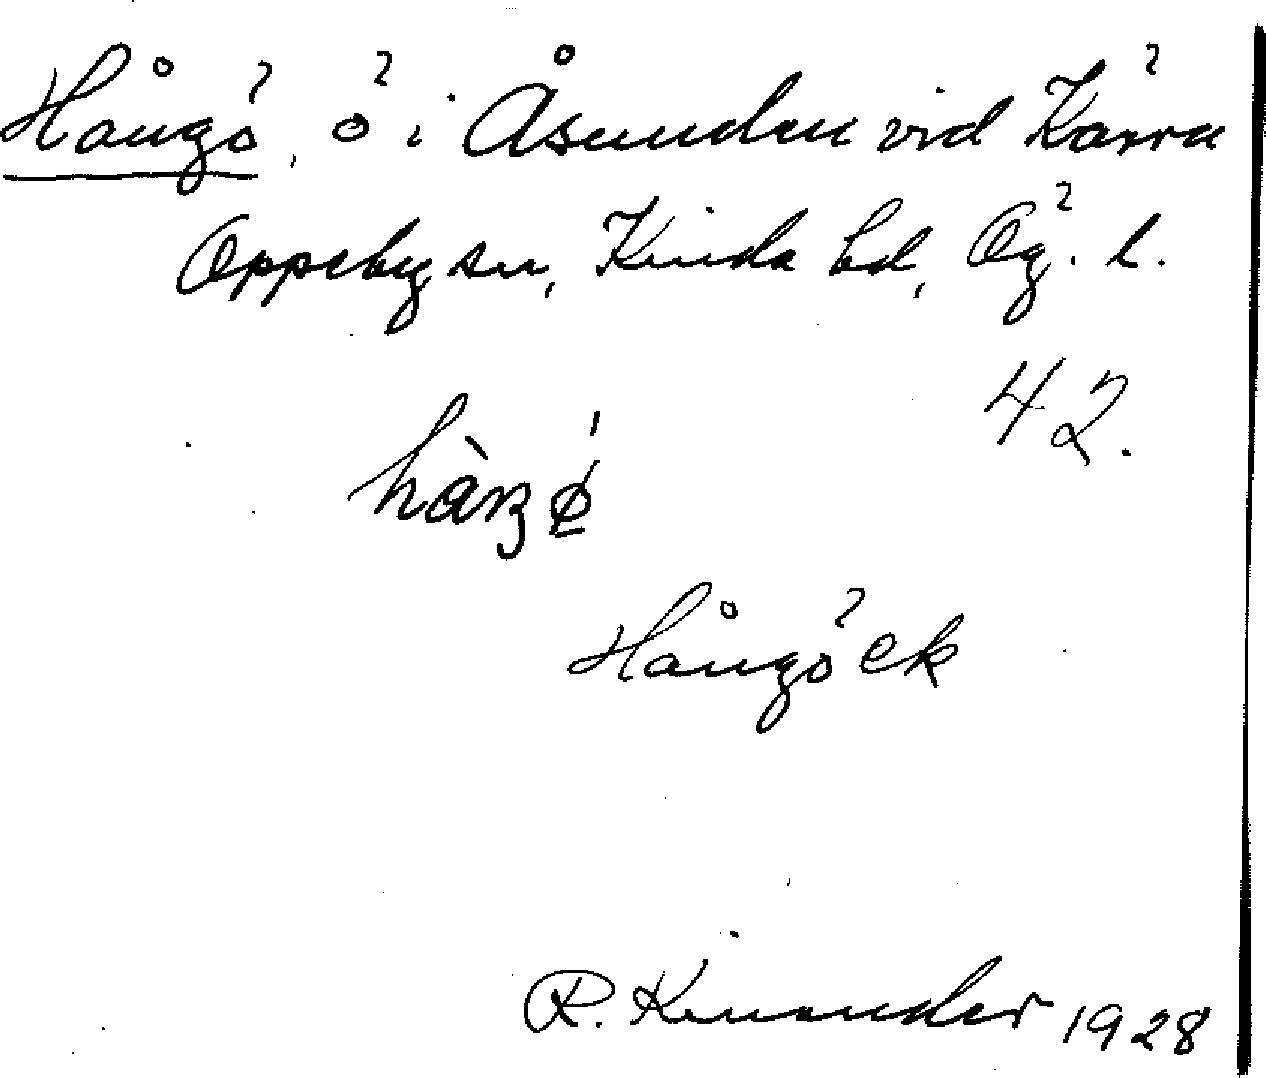 Hångö, ö i Åsunden vid Kärra
Oppeby sn, Kinda hd, Ög. l.
42.
Hångö ek
R. Kinander 1928